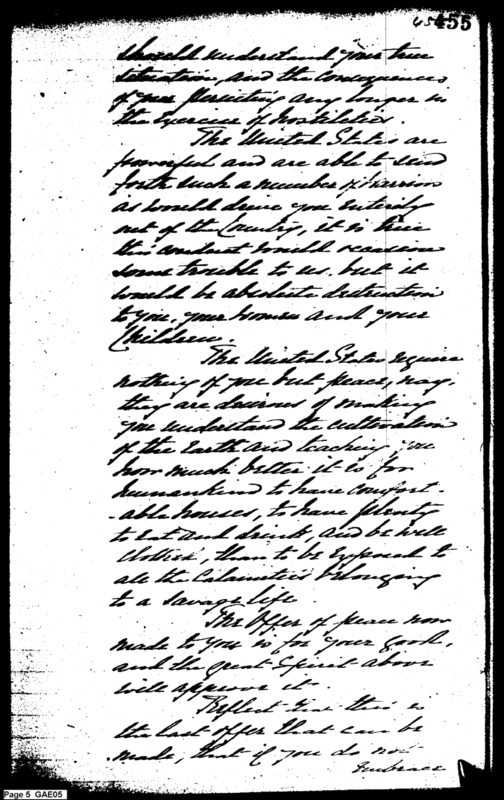 455
should understand your true
situation, and the consequences
of your persisting any longer in
the exercise of hostilities.
The United States are
powerful and are able to send
forth such a number of Warriors
as would drive you entirely
out of the Country, it is true
this conduct would occasion
some trouble to us, but it
would be absolute destruction
to you, your women and your
Children.
The United States require
nothing of you but peace, nay,
they are desirous of making
you understand the cultivation
of the earth and teaching you
how much better it is for
humankind to have comfort-
-able houses, to have plenty
to eat and drink, and be well
clothed, than to be exposed to
all the Calamities belonging
to a savage life.
The Offer of peace now
made to you is for your good,
and the great Spirit above
will approve it.
Reflect that this is
the last offer that can be
made, that if you do not
embrace
Page 5 GAE05